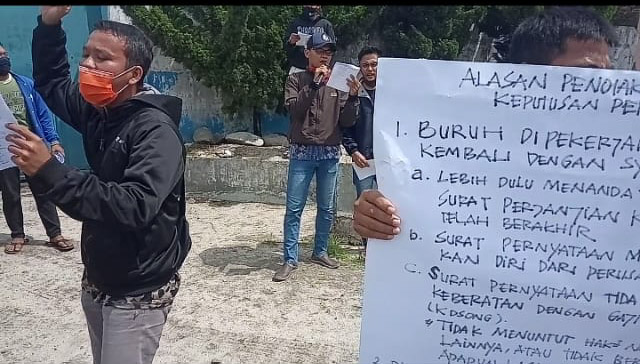 ALASAN
KEPUTUSAN
1. BURUH DIPEKERJA
KEMBALI DENGAN
a. LEBIH DULU MENANDA
SURAT PERJANJIAN
TELAH BERAKHIR
b. SURAT PERNYATAAN M
KAN DIRI DARI
C. SURAT PERNYATAAN TIDA
KEBERATAN DENGAN GAJI
(KOSONG).
* TIDAK MENUNTUT HAK²
LAINNYA, ATAU TIDAK